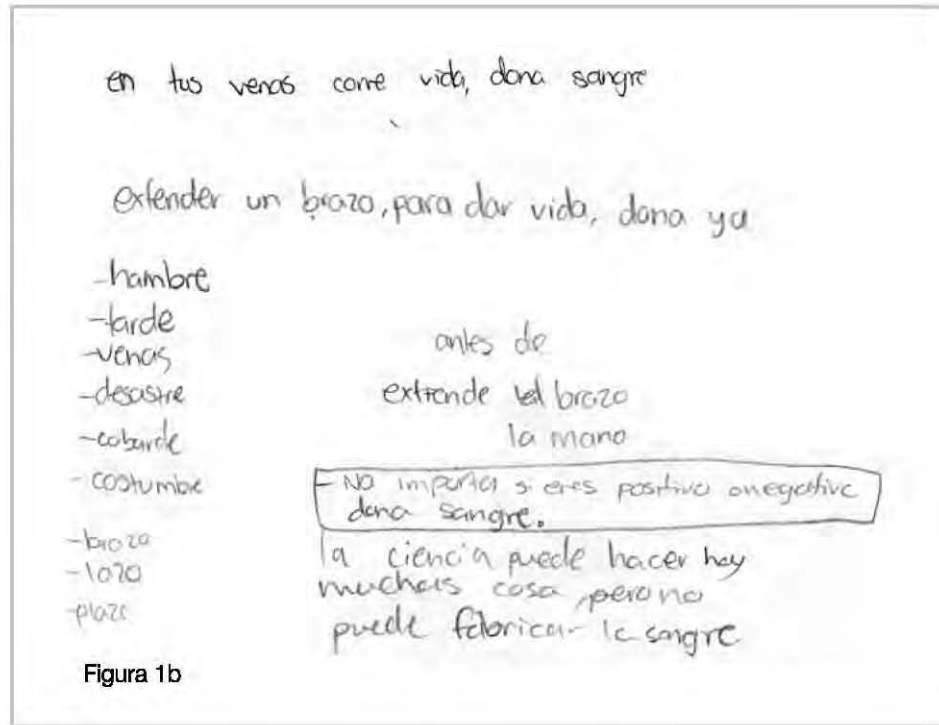 en tus venas corre vida, dona sangre
extender un brazo, para dar vida, dona ya
-hambre
-tarde
-venas
-desastre
-cobarde
- costumbre
-brazo
-lazo
-plazo
antes de
extiende el brazo
la mano
- No importa si eres positivo o negativo
dona sangre.
la ciencia puede hacer hoy
muchas cosa, pero no
puede fabricar la sangre
Figura 1b